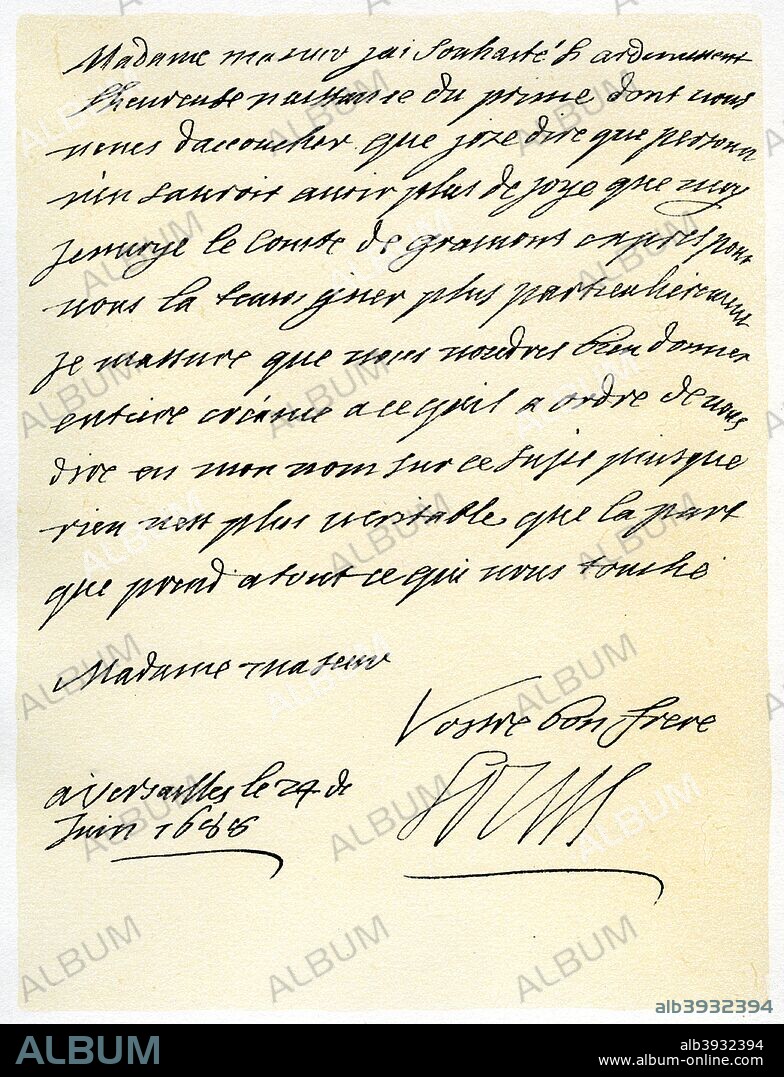 Madame ma seur jai souhaité si ardemment
lheureuse naissance du prince dont vous
venes daccoucher que joze dire que personne
nen sauroit avoir plus de joye que moy
Jenvoye le Comte de gramont expres pour
vous la temoigner plus particulierement
je massure que vous voudres bien donner
entiere créance a ce quil a ordre de vous
dire en mon nom sur ce sujet puisque
rien nest plus veritable que la part
que prend a tout ce qui vous touche
Madame ma seur
Vostre bon frere
Louis
a versailles le 24 de
Juin 1688
ALBUM
alb3932394
ALBUM
alb3932394
www.album-online.com